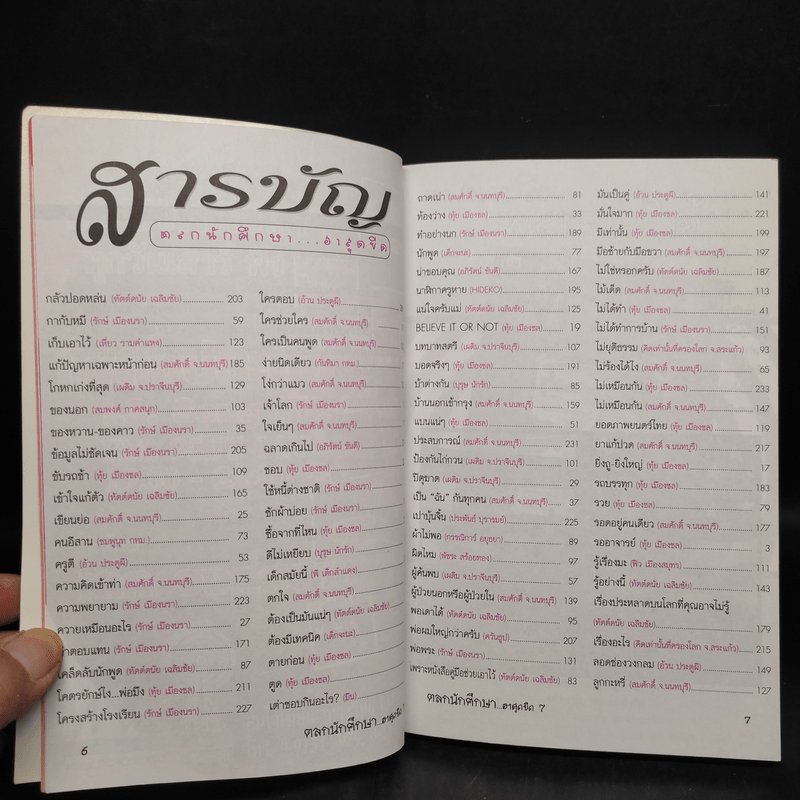 สารบัญ
ตลกนักศึกษา...ฮาสุดขีด
กลัวปอดหล่น (ทัตต์ดนัย เฉลิมชัย) 203
กากับหมี (รักษ์ เมืองนรา) 59
เก็บเอาไว้ (เหี่ยว รามคำแหง) 123
แก้ปัญหาเฉพาะหน้าก่อน (สมศักดิ์ จ.นนทบุรี) 185
โกหกเก่งที่สุด (เผดิม จ.ปราจีนบุรี) 129
ของนอก (สมพงศ์ กาศสนุก) 103
ของหวาน-ของคาว (รักษ์ เมืองนรา) 35
ข้อมูลไม่ชัดเจน (รักษ์ เมืองนรา) 205
ขับรถช้า (ทุ้ย เมืองชล) 109
เข้าใจแก้ตัว (ทัตต์ดนัย เฉลิมชัย) 165
เขียนย่อ (สมศักดิ์ จ.นนทบุรี) 25
คนอีสาน (ชมพูนุท กทม.) 73
ครูตี (อ้วน ประตูผี) 53
ความคิดเข้าท่า (สมศักดิ์ จ.นนทบุรี) 175
ความพยายาม (รักษ์ เมืองนรา) 223
ควายเหมือนอะไร (รักษ์ เมืองนรา) 27
คำตอบแทน (รักษ์ เมืองนรา) 171
เคล็ดลับนักพูด (ทัตต์ดนัย เฉลิมชัย) 87
โคตรยักษ์ไง...พ่อมึง (ทุ้ย เมืองชล) 211
โครงสร้างโรงเรียน (รักษ์ เมืองนรา) 227
6
ใครตอบ (อ้วน ประตูผี)
ใครช่วยใคร (สมศักดิ์ จ.นนทบุรี)
ใครเป็นคนพูด (สมศักดิ์ จ.นนทบุรี)
ง่ายนิดเดียว (กันทิมา กทม.)
โง่กว่าแมว (สมศักดิ์ จ.นนทบุรี)
เจ้าโลก (รักษ์ เมืองนรา)
ใจเย็นๆ (สมศักดิ์ จ.นนทบุรี)
ฉลาดเกินไป (อภิรัตน์ ขันตี)
ชอบ (ทุ้ย เมืองชล)
ใช้หนี้ต่างชาติ (รักษ์ เมืองนรา)
ซักผ้าบ่อย (รักษ์ เมืองนรา)
ซื้อจากที่ไหน (ทุ้ย เมืองชล)
ดีไม่เหยียบ (บุรุษ นักรัก)
เด็กสมัยนี้ (พิ เด็กลำแดง)
ตกใจ (สมศักดิ์ จ.นนทบุรี)
ต้องเป็นมันแน่ๆ (ทัตต์ดนัย เฉลิมชัย)
ต้องมีเทคนิค (เด็กจะนะ)
ตายก่อน (ทุ้ย เมืองชล)
ตูด (ทุ้ย เมืองชล)
เต่าชอบกินอะไร? (มีน)
ตลกนักศึกษา...ฮาสุดขีด 7
ถาดเน่า (สมศักดิ์ จ.นนทบุรี) 81
ท้องว่าง (ทุ้ย เมืองชล) 33
ทำอย่างนก (รักษ์ เมืองนรา) 189
นักพูด (เด็กจะนะ) 77
น่าขอบคุณ (อภิรัตน์ ขันตี) 167
นาฬิกาครูหาย (HIDEKO) 23
แน่ใจครับแม่ (ทัตต์ดนัย เฉลิมชัย) 125
BELIEVE IT OR NOT (ทุ้ย เมืองชล) 19
บทบาทสตรี (เผดิม จ.ปราจีนบุรี) 107
บอดจริงๆ (ทุ้ย เมืองชล) 195
บ้าต่างกัน (บุรุษ นักรัก) 85
บ้านนอกเข้ากรุง (สมศักดิ์ จ.นนทบุรี) 159
แบนแน่ๆ (ทุ้ย เมืองชล) 51
ประสบการณ์ (สมศักดิ์ จ.นนทบุรี) 231
ป้องกันไก่กวน (เผดิม จ.ปราจีนบุรี) 101
ปิตุฆาต (เผดิม จ.ปราจีนบุรี) 29
เป็น “ฉัน” กันทุกคน (สมศักดิ์ จ.นนทบุรี) 37
เปาบุ้นจิ้น (ประพันธ์ บุรารมย์) 225
ผ้าไม่พอ (กรรณิการ์ อยุธยา) 89
ผิดไหม (พัชระ สร้อยทอง) 97
ผู้ค้นพบ (เผดิม จ.ปราจีนบุรี) 57
ผู้ป่วยนอกหรือผู้ป่วยใน (สมศักดิ์ จ.นนทบุรี) 139
พอเดาได้ (ทัตต์ดนัย เฉลิมชัย) 95
พ่อผมใหญ่กว่าครับ (ควันธูป) 207
พ่อพระ (รักษ์ เมืองนรา) 131
เพราะหนังสือคู่มือช่วยเอาไว้ (ทัตต์ดนัย เฉลิมชัย) 83
มันเป็นคู่ (อ้วน ประตูผี) 141
มั่นใจมาก (ทุ้ย เมืองชล) 221
มีเท่านั้น (ทุ้ย เมืองชล) 199
มือซ้ายกับมือขวา (สมศักดิ์ จ.นนทบุรี) 197
ไม่ใช่หรอกครับ (ทัตต์ดนัย เฉลิมชัย) 187
ไม้เด็ด (สมศักดิ์ จ.นนทบุรี) 113
ไม่ได้ทำ (ทุ้ย เมืองชล) 41
ไม่ได้ทำการบ้าน (รักษ์ เมืองนรา) 151
ไม่ยุติธรรม (คิดเท่านั้นที่ครองโลก จ.สระแก้ว) 93
ไม่ร้องได้ไง (สมศักดิ์ จ.นนทบุรี) 65
ไม่เหมือนกัน (ทุ้ย เมืองชล) 233
ไม่เหมือนกัน (สมศักดิ์ จ.นนทบุรี) 147
ยอดภาพยนตร์ไทย (ทุ้ย เมืองชล) 119
ยาแก้ปวด (สมศักดิ์ จ.นนทบุรี) 217
ยิ่งถู-ยิ่งใหญ่ (ทุ้ย เมืองชล) 17
รถบรรทุก (ทุ้ย เมืองชล) 183
รวย (ทุ้ย เมืองชล) 79
รอดอยู่คนเดียว (สมศักดิ์ จ.นนทบุรี) 177
รออาจารย์ (ทุ้ย เมืองชล) 3
รู้เรื่องมะ (ผิว เมืองสมุทร) 111
รู้อย่างนี้ (ทัตต์ดนัย เฉลิมชัย) 143
เรื่องประหลาดบนโลกที่คุณอาจไม่รู้
(ทัตต์ดนัย เฉลิมชัย) 179
เรื่องอะไร (คิดเท่านั้นที่ครองโลก จ.สระแก้ว) 215
ลอดช่องวงกลม (อ้วน ประตูผี) 149
ลูกกะหรี่ (สมศักดิ์ จ.นนทบุรี) 127
ตลกนักศึกษา...ฮาสุดขีด 7
7